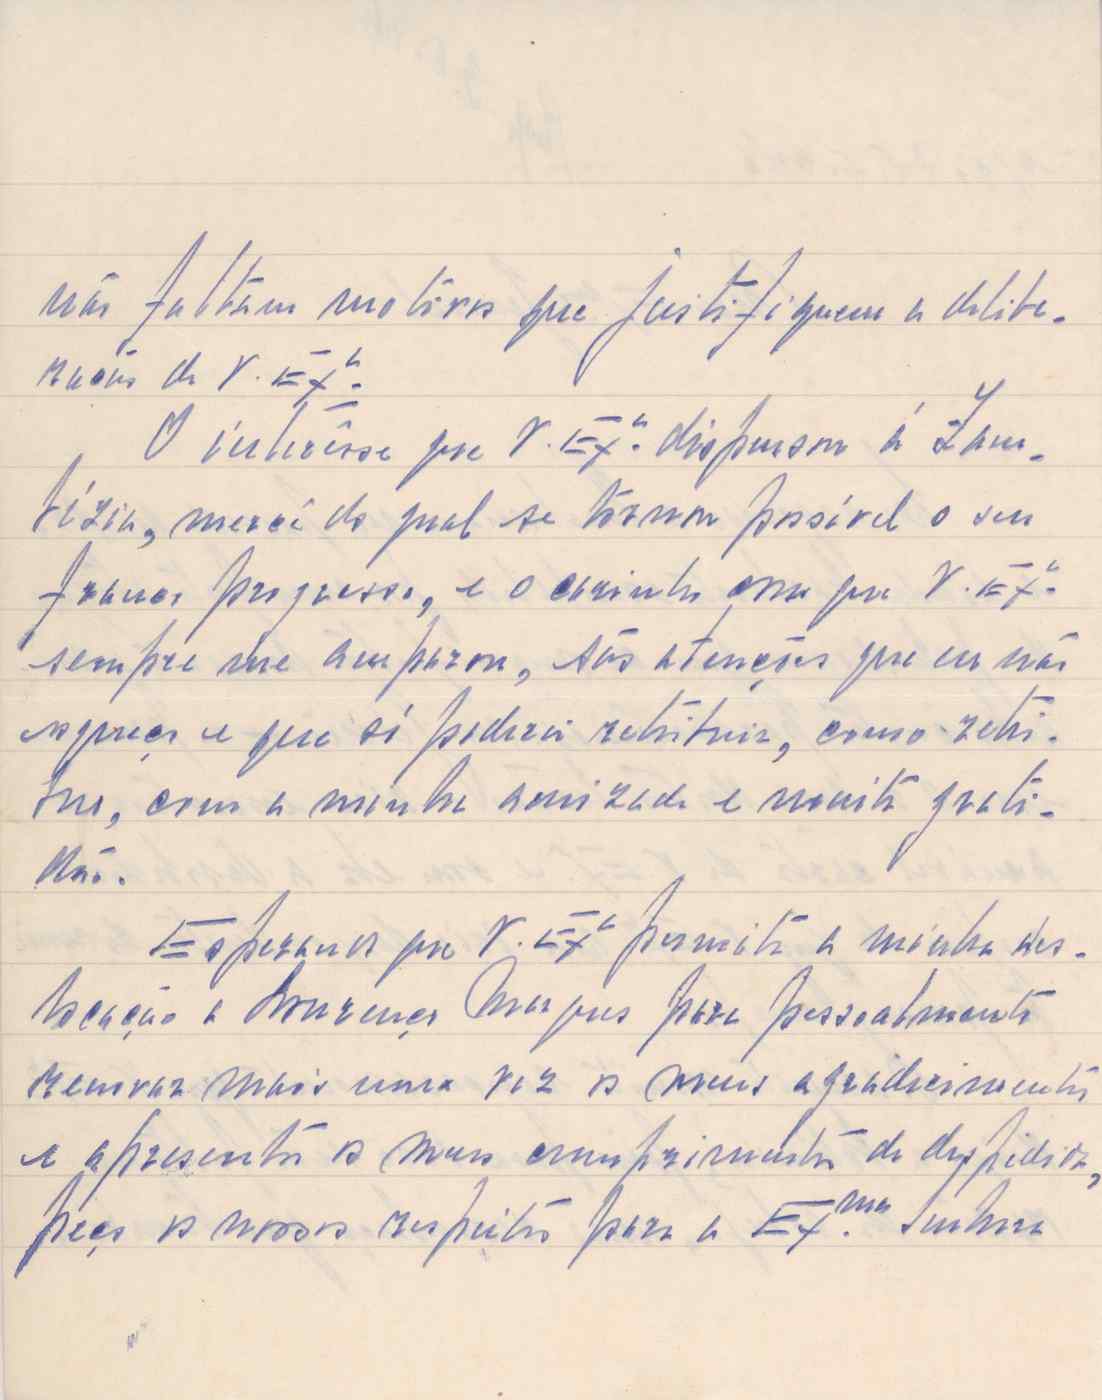 não faltam motivos que justifiquem a delibe-
ração de V. Exª.
O interêsse que V. Exª. dispensou á Zam-
bézia, mercê do qual se tornou possível o seu
franco progresso, e o carinho com que V. Exª.
sempre me amparou, são atenções que eu não
esqueço e que só poderei retribuir, como retri-
buo, com a minha amizade e muita grati-
dão.
Esperando que V. Exª permita a minha des-
locação a Lourenço Marques para pessoalmente
renovar mais uma vez os meus agradecimentos
e apresentar os meus cumprimentos de despedida,
peço os nossos respeitos para a Ex.ma Senhora